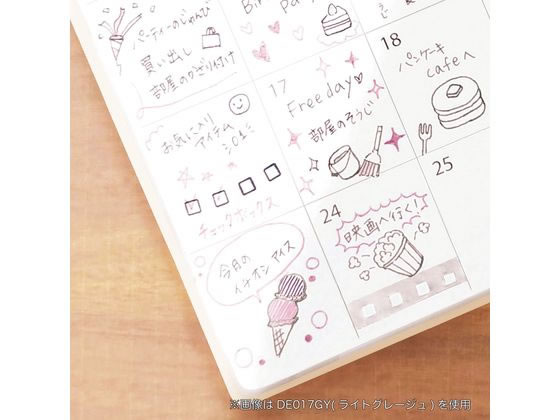 パーティーのじゅんび
買い出し
部屋のかざり付け
17
Free day
部屋のそうじ
18
パンケーキ
cafeへ
お気に入り
アイテム
チェックボックス
24
映画へ行く!
25
今月の
イチオシアイス
※画像はDE017GY(ライトグレージュ)を使用